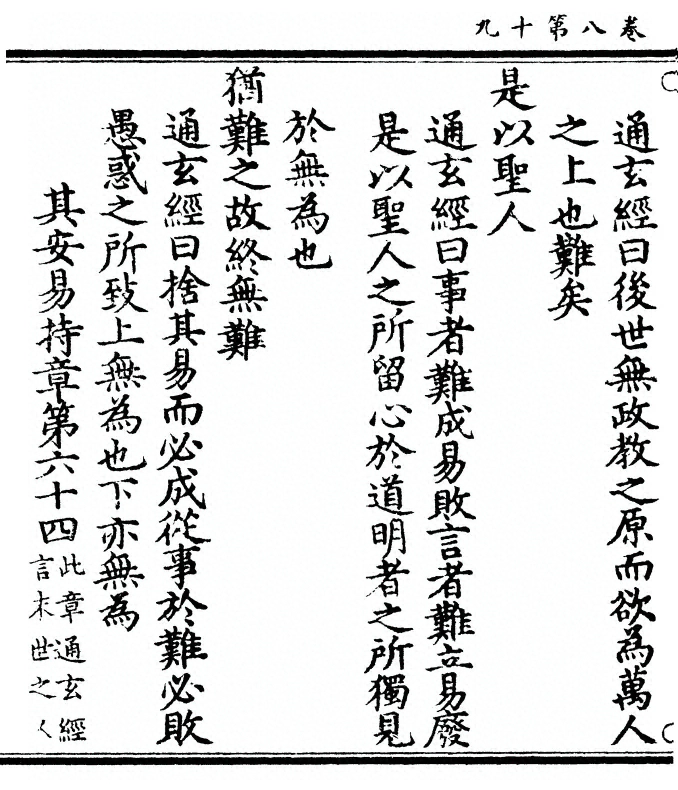 卷八第十九
通玄經曰後世無政教之原而欲為萬人
之上也難矣
是以聖人
通玄經曰事者難成易敗言者難立易廢
是以聖人之所留心於道明者之所獨見
於無為也
猶難之故終無難
通玄經曰捨其易而必成從事於難必敗
愚惑之所致上無為也下亦無為
其安易持章第六十四此章通玄經
言末世之人